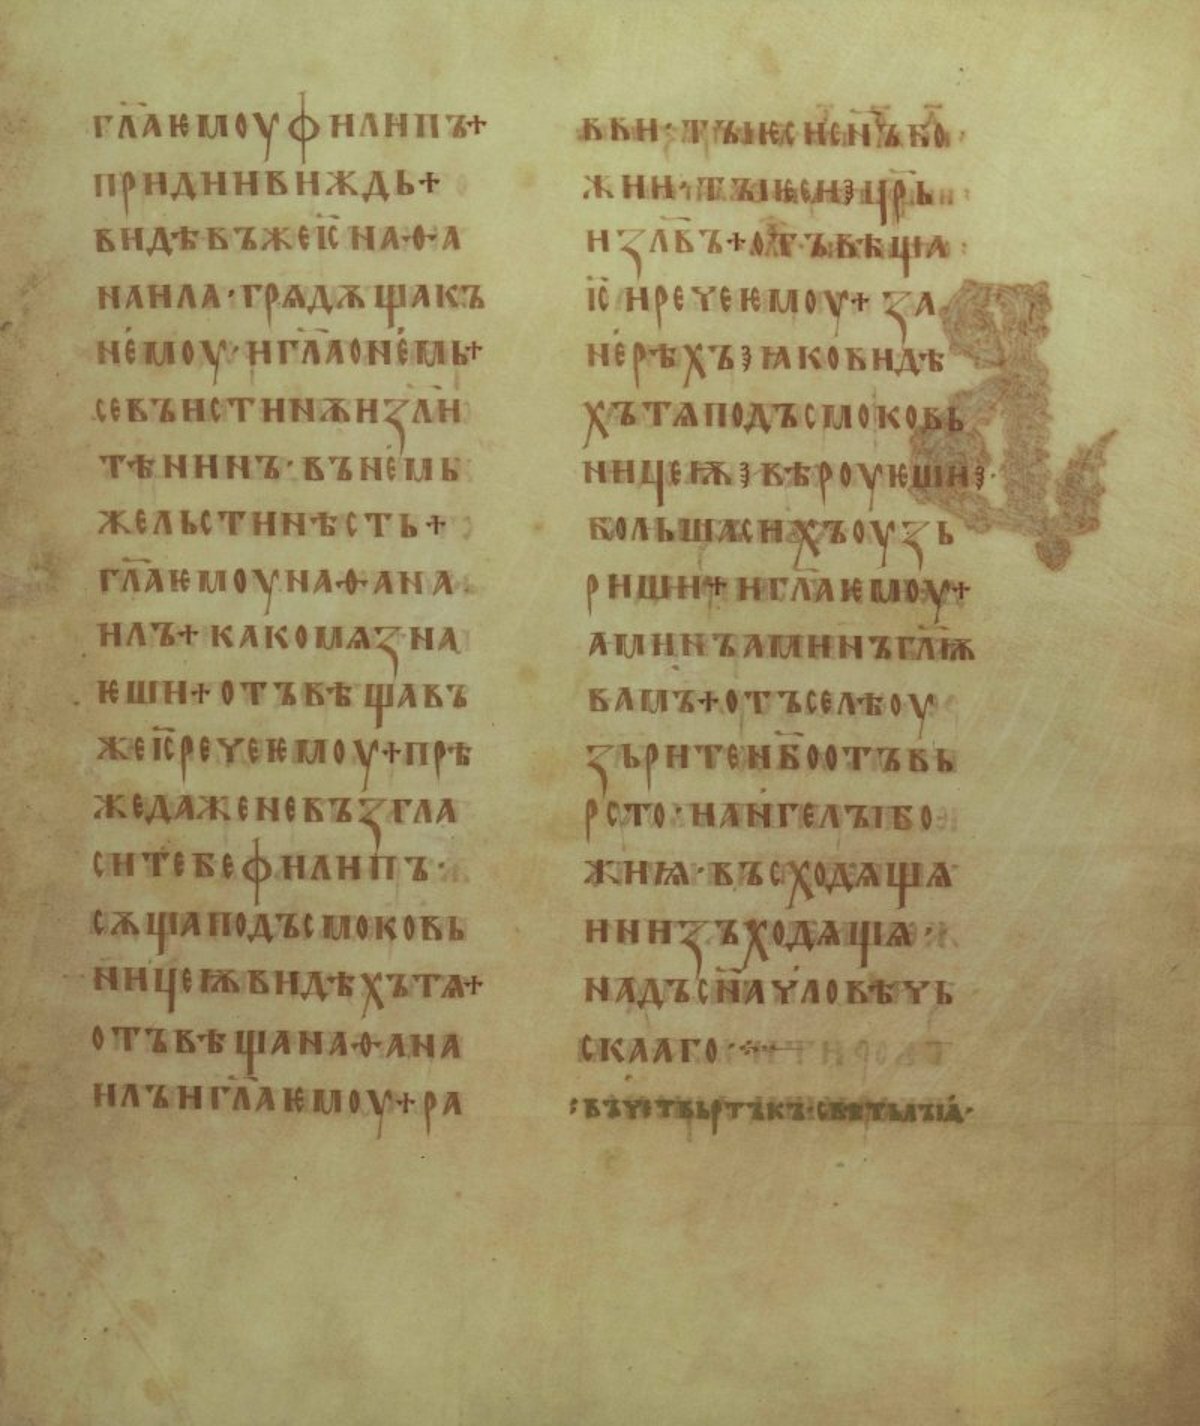 гл҃аѥмоуфилипъ+
придиивиждь+
видѣвъжеіс҃наѳа
наила·грѧдѫщакъ
немоу·игл҃аонемь+
севъистинѫиꙁл҃и
тѣнинъ·въньемь
жельстинѣсть+
гл҃аѥмоунаѳана
илъ+какомѧꙁна
ѥши+отъвѣщавъ
жеіс҃речеѥмоу+прѣ
жедаженевъꙁгла
ситебефилипъ·
сѫщаподъсмоковь
ницеѭвидѣхътѧ+
отъвѣщанаѳана
илъигл҃аѥмоу+ра
вви·тыѥсисн҃ъбо
жии·тыѥсиꙁцр҃ь
иꙁл҃въ+отъвѣща
іс҃иречеѥмоу+ꙁа
нерѣхъꙁꙗковидѣ
хътѧподъсмоковь
ницеѭꙁвѣроуѥшиꙁ·
большасихъоуꙁь
риши+игл҃аѥмоу+
аминъаминъгл҃ѭ
вамъ+отъселѣоу
ꙁьритенб҃оотъвь
рсто·иан҃гелыбо
жиѩ·въсходѧщѧ
ииꙁъходѧщѧ·
надъсн҃ачловѣчь
скааго·
:въчетвьртъкъ·свѣтълыꙗ·